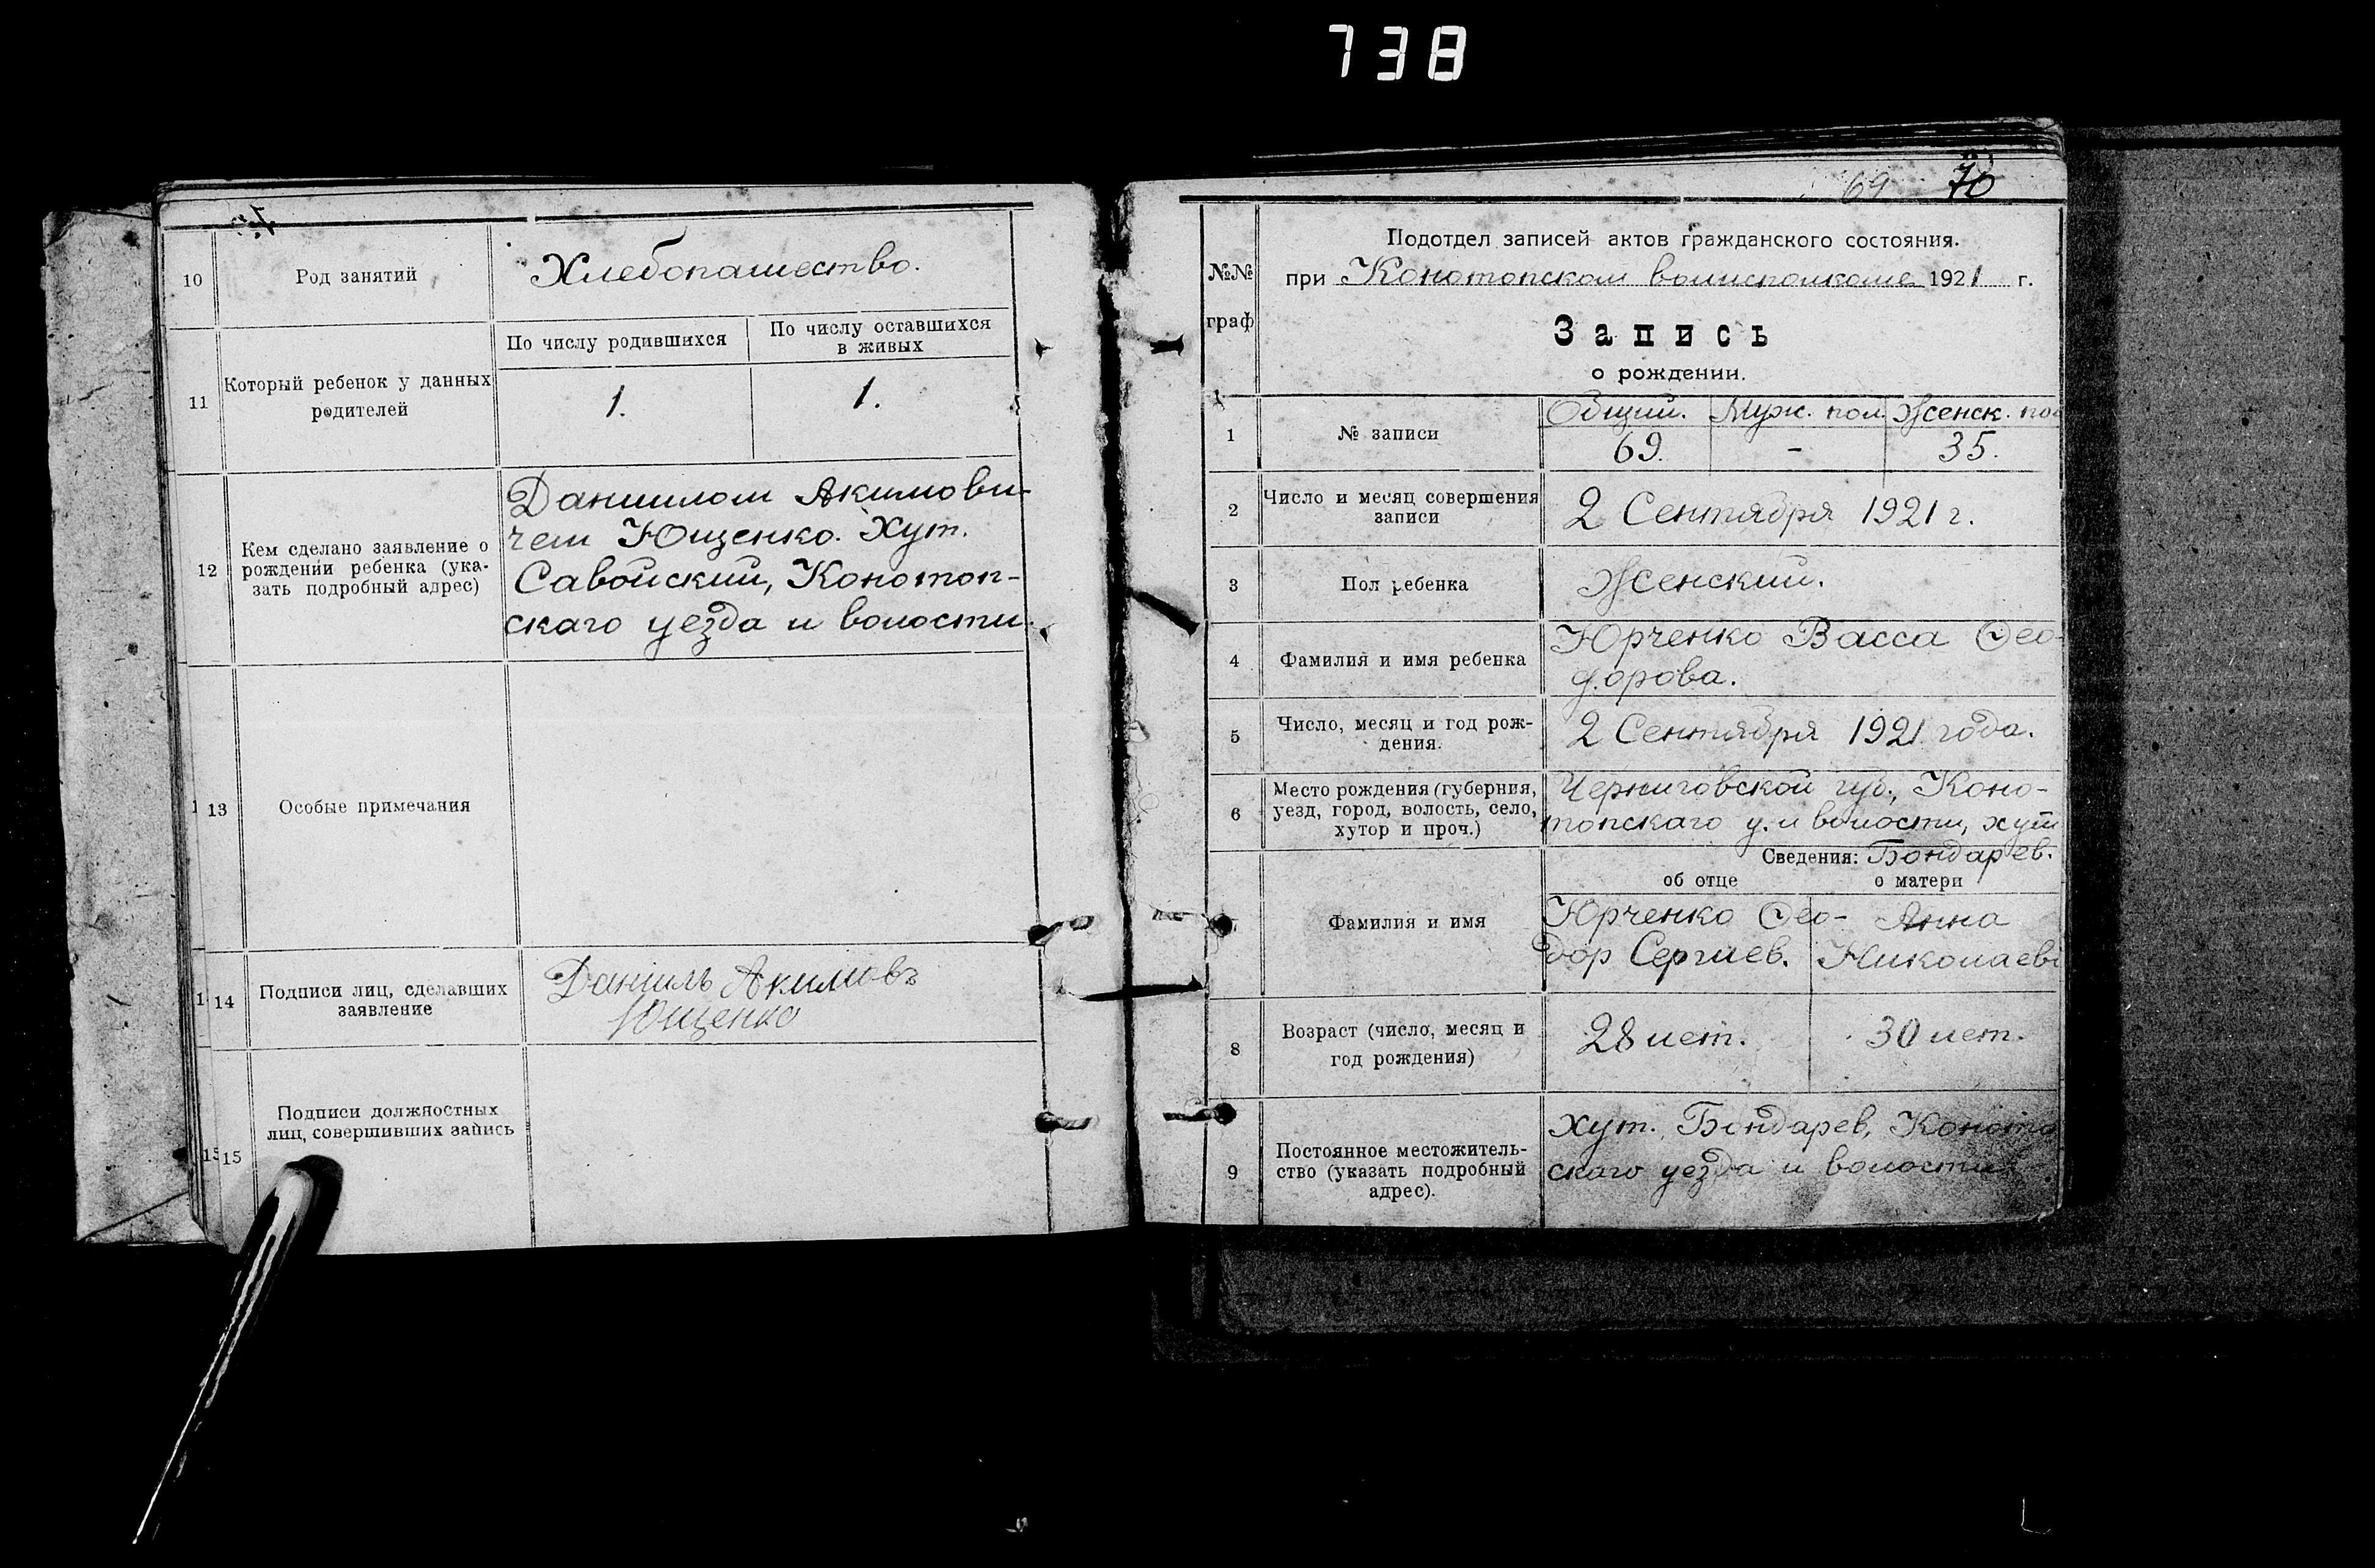 738
10
Род занятий
Хлебопашество.
11
Который ребенок у данных
родителей
По числу родившихся
По числу оставшихся
в живых
1.
1.
12
Кем сделано заявление о
рождении ребенка (ука-
зать подробный адрес)
Даниилом Акимови-
чем Ющенко. Хут.
Савойский, Конотоп-
скаго уезда и волости
13
Особые примечания
14
Подписи лиц, сделавших
заявление
Даниилъ Акимовъ
Ющенко
15
15
Подписи должностных
лиц, совершивших запись
69
70
№№
граф
Подотдел записей актов гражданского состояния.
при Конотопском волисполкоме 1921 г.
Запись
о рождении.
1
№ записи
Общий. Муж. пол. Женск. пол
69. - 35.
2
Число и месяц совершения
записи
2 Сентября 1921 г.
3
Пол ребенка
Женский.
4
Фамилия и имя ребенка
Юрченко Васса Фео-
дорова.
5
Число, месяц и год рож-
дения.
2 Сентября 1921 года.
6
Место рождения (губерния,
уезд, город, волость, село,
хутор и проч.)
Черниговской губ., Коно-
топскаго у. и волости, хут
Сведения: Бондарев.
об отце
о матери
Фамилия и имя
Юрченко Фео-
дор Сергиев.
Анна
Николаев
8
Возраст (число, месяц и
год рождения)
28 лет.
30 лет.
9
Постоянное местожитель-
ство (указать подробный
адрес).
Хут. Бондарев, Конотоп
скаго уезда и волости